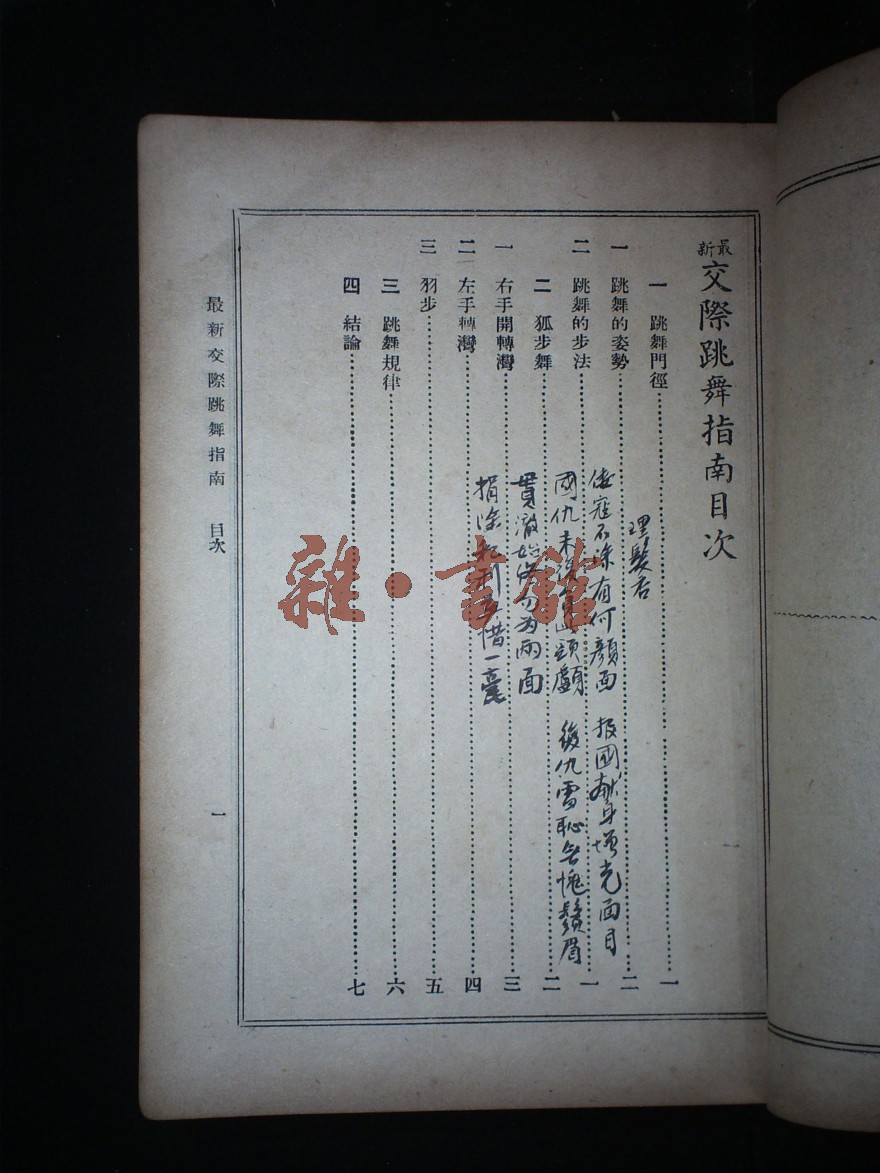 最新交際跳舞指南目次
一 跳舞門徑……一
一 跳舞的姿勢……二
二 跳舞的步法……一
二 狐步舞……二
一 右手開轉灣……三
二 左手轉灣……四
三 羽步……五
三 跳舞規律……六
四 結論……七
理髮
倭寇不除有何顏面 报國献身增光面目
國仇未復 頭顱 復仇雪恥無愧鬚眉
貫澈始終勿為兩面
捐 惜一毫
雜·書館
最新交際跳舞指南 目次
一